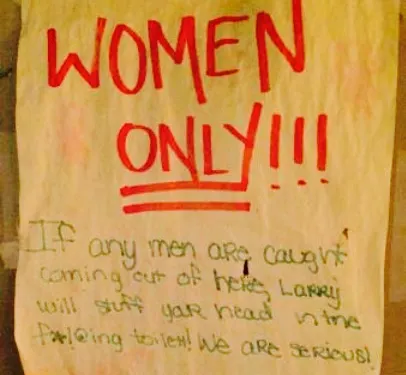 WOMEN
ONLY!!!
If any men are caught
coming out of here, Larry
will stuff your head in the
f*!@ing toilet! We are serious!